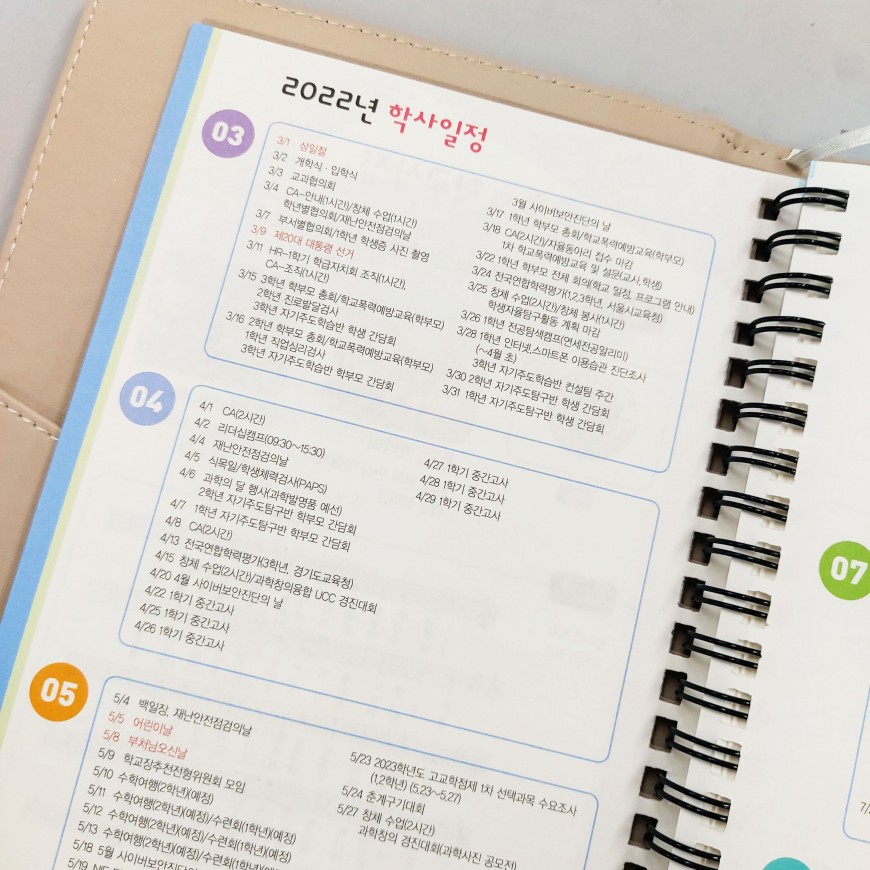 2022년 학사일정
03
3/1 삼일절
3/2 개학식 · 입학식
3/3 교과협의회
3/4 CA-안내(1시간)/창체 수업(1시간)
학년별협의회/재난안전점검의날
3/7 부서별협의회/1학년 학생증 사진 촬영
3/9 제20대 대통령 선거
3/11 HR-1학기 학급자치회 조직(1시간)
CA-조직(1시간)
3/15 3학년 학부모 총회/학교폭력예방교육(학부모)
2학년 진로발달검사
3학년 자기주도학습반 학생 간담회
3/16 2학년 학부모 총회/학교폭력예방교육(학부모)
1학년 직업심리검사
3학년 자기주도학습반 학부모 간담회
3월 사이버보안진단의 날
3/17 1학년 학부모 총회/학교폭력예방교육(학부모)
3/18 CA(2시간)/자율동아리 접수 마감
1차 학교폭력예방교육 및 설문(교사,학생)
3/22 1학년 학부모 전체 회의(학교 일정, 프로그램 안내)
3/24 전국연합학력평가(1,2,3학년, 서울시교육청)
3/25 창체 수업(2시간)/창체 봉사(1시간)
학생자율탐구활동 계획 마감
3/26 1학년 전공탐색캠프(연세전공알리미)
3/28 1학년 인터넷,스마트폰 이용습관 진단조사
(~4월 초)
3학년 자기주도학습반 컨설팅 주간
3/30 2학년 자기주도탐구반 학생 간담회
3/31 1학년 자기주도탐구반 학생 간담회
04
4/1 CA(2시간)
4/2 리더십캠프(09:30~15:30)
4/4 재난안전점검의날
4/5 식목일/학생체력검사(PAPS)
4/6 과학의 달 행사(과학발명품 예선)
2학년 자기주도탐구반 학부모 간담회
4/7 1학년 자기주도탐구반 학부모 간담회
4/8 CA(2시간)
4/13 전국연합학력평가(3학년, 경기도교육청)
4/15 창체 수업(2시간)/과학창의융합 UCC 경진대회
4/20 4월 사이버보안진단의 날
4/22 1학기 중간고사
4/25 1학기 중간고사
4/26 1학기 중간고사
4/27 1학기 중간고사
4/28 1학기 중간고사
4/29 1학기 중간고사
05
5/4 백일장, 재난안전점검의날
5/5 어린이날
5/8 부처님오신날
5/9 학교장추천전형위원회 모임
5/10 수학여행(2학년)(예정)
5/11 수학여행(2학년)(예정)/수련회(1학년)(예정)
5/12 수학여행(2학년)(예정)/수련회(1학년)(예정)
5/13 수학여행(2학년)(예정)/수련회(1학년)(예정)
5/18 5월 사이버보안진단의
5/19
5/23 2023학년도 고교학점제 1차 선택과목 수요조사
(1,2학년) (5.23~5.27)
5/24 춘계구기대회
5/27 창체 수업(2시간)
과학창의 경진대회(과학사진 공모전)
07
7/